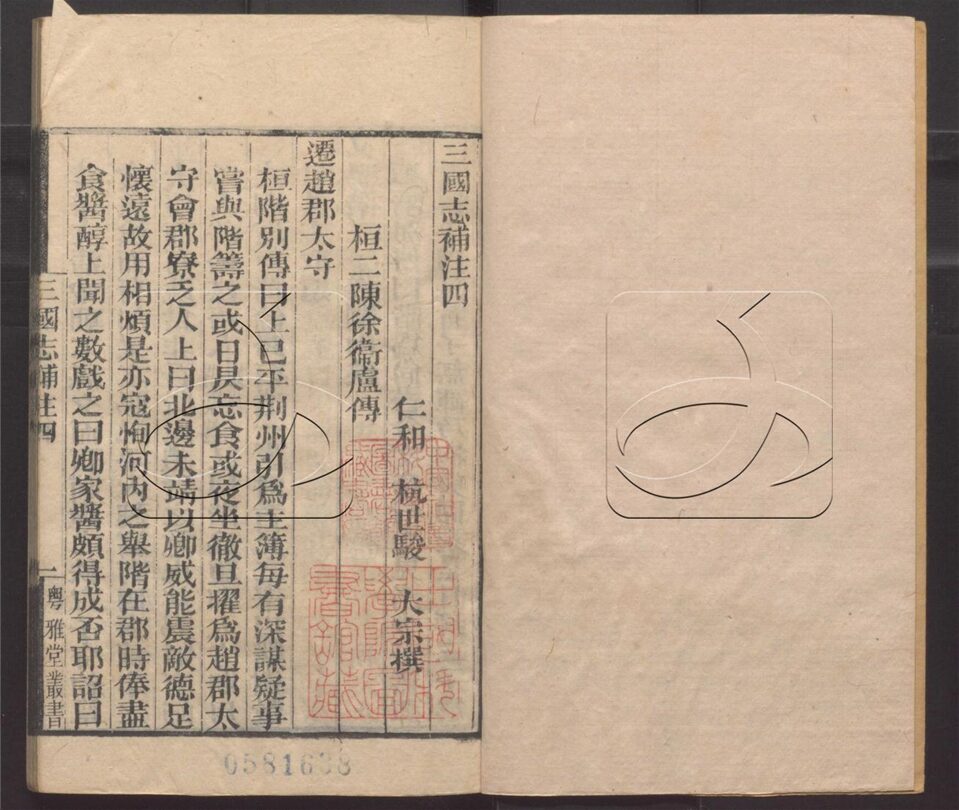 三國志補注四
仁和 杭世駿 大宗撰
桓二陳徐衞盧傳
遷趙郡太守
桓階別傳曰上已平荆州引爲主簿每有深謀疑事
嘗與階籌之或日昃忘食或夜坐徹旦擢爲趙郡太
守會郡寮乏人上曰北邊未靖以卿威能震敵德足
懷遠故用相煩是亦寇恂河内之舉階在郡時俸盡
食醬醇上聞之數戲之曰卿家醬頗得成否耶詔曰
三國志補注四
一
粵雅堂叢書
0581638